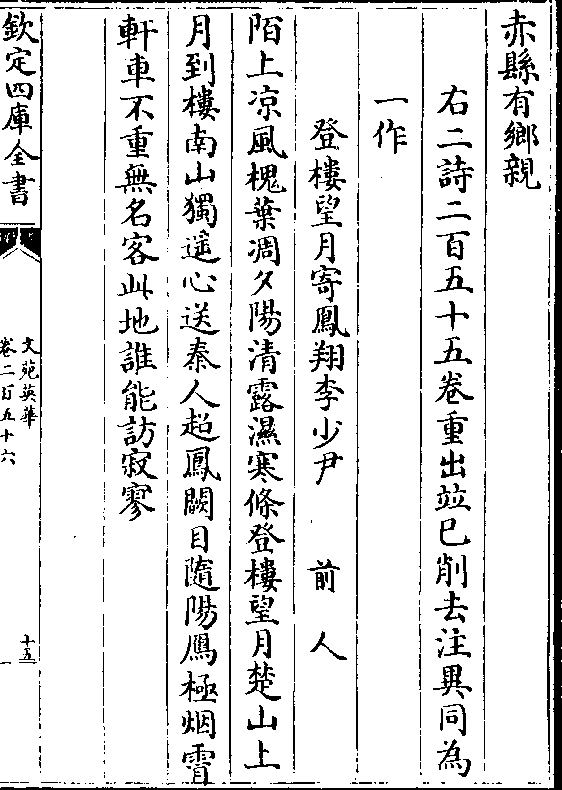 赤縣有鄉親
右二詩二百五十五卷重出竝已削去注異同為
一作
登樓望月寄鳳翔李少尹 前人
陌上凉風槐葉凋夕陽清露濕寒條登樓望月楚山上
月到樓南山獨遥心送秦人超鳳闕目隨陽鴈極烟霄
軒車不重無名客此地誰能訪寂寥
欽定四庫全書
文苑英華
卷二百五十六
十五